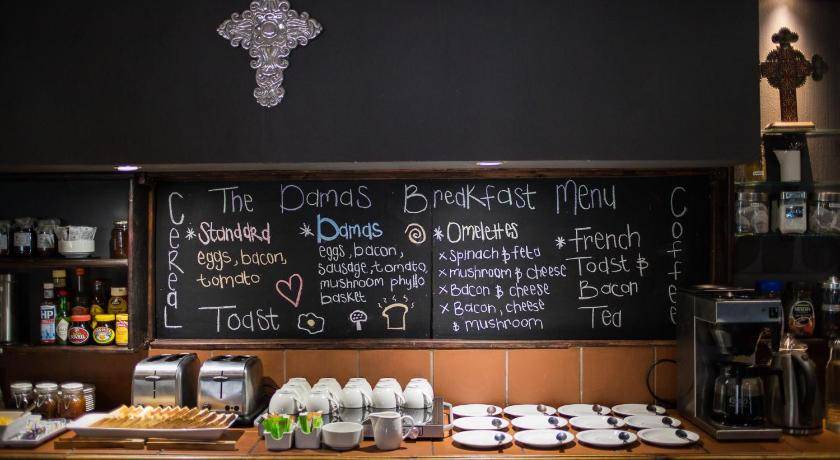 The Damas Breakfast Menu
Cereal
*Standard
eggs, bacon,
tomato
Toast
*Damas
eggs, bacon,
sausage, tomato,
mushroom phyllo
basket
*Omelettes
x spinach & feta
x mushroom & cheese
x Bacon & cheese
x Bacon, cheese
& mushroom
*French
Toast &
Bacon
Tea
Coffee
HP